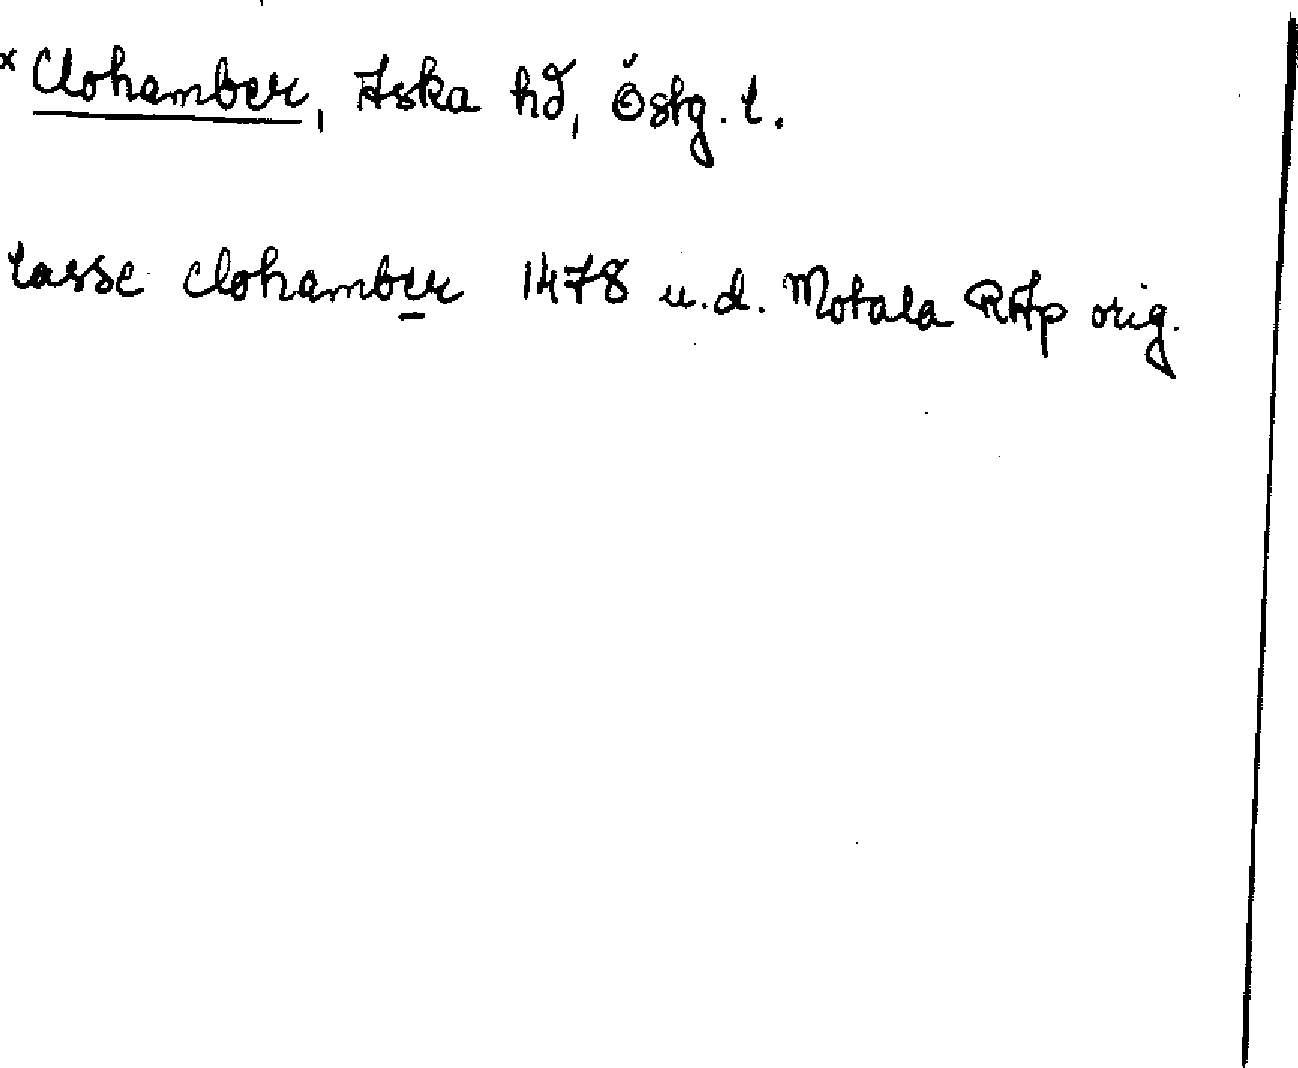 × Clohamber, Aska hd, Östg. l.
lasse clohamber 1478 u.d. Motala RAp orig.